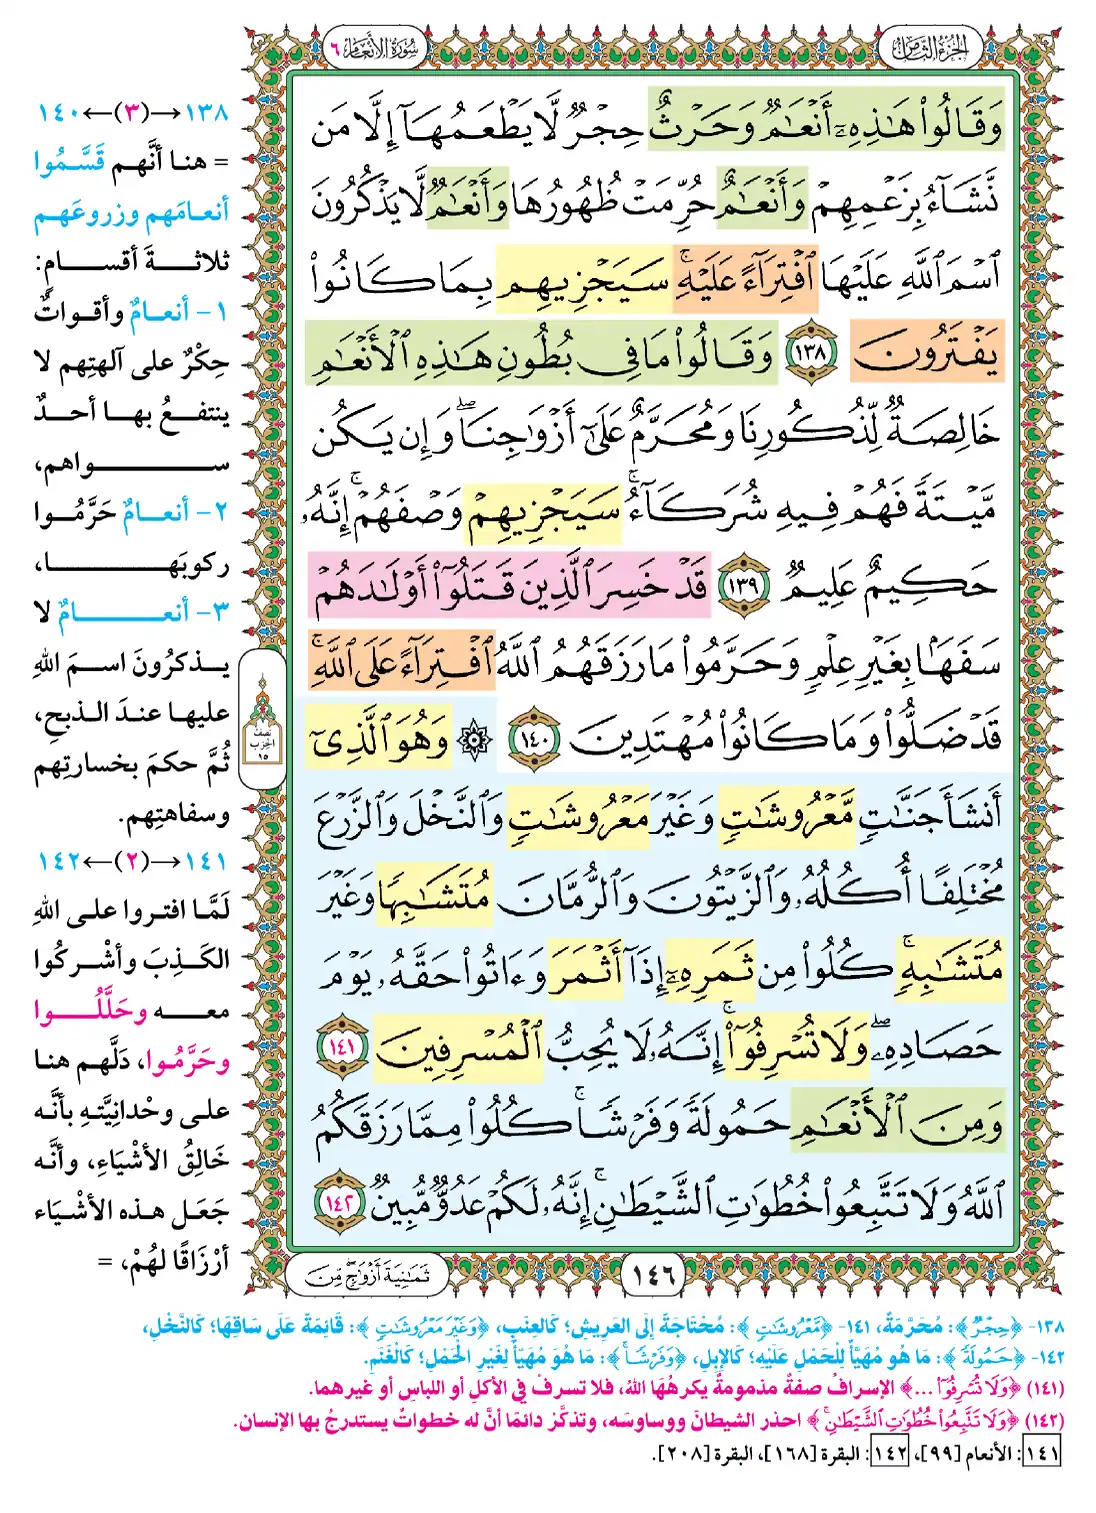 الجزء الثامن
سورة الأنعام ٦
وَقَالُوا۟ هَـٰذِهِۦٓ أَنْعَـٰمٌ وَحَرْثٌ حِجْرٌ لَّا يَطْعَمُهَآ إِلَّا مَن
نَّشَآءُ بِزَعْمِهِمْ وَأَنْعَـٰمٌ حُرِّمَتْ ظُهُورُهَا وَأَنْعَـٰمٌ لَّا يَذْكُرُونَ
ٱسْمَ ٱللَّهِ عَلَيْهَا ٱفْتِرَآءً عَلَيْهِ ۚ سَيَجْزِيهِم بِمَا كَانُوا۟
يَفْتَرُونَ ١٣٨ وَقَالُوا۟ مَا فِى بُطُونِ هَـٰذِهِ ٱلْأَنْعَـٰمِ
خَالِصَةٌ لِّذُكُورِنَا وَمُحَرَّمٌ عَلَىٰٓ أَزْوَٰجِنَا ۖ وَإِن يَكُن
مَّيْتَةً فَهُمْ فِيهِ شُرَكَآءُ ۚ سَيَجْزِيهِمْ وَصْفَهُمْ ۚ إِنَّهُۥ
حَكِيمٌ عَلِيمٌ ١٣٩ قَدْ خَسِرَ ٱلَّذِينَ قَتَلُوٓا۟ أَوْلَـٰدَهُمْ
سَفَهًۢا بِغَيْرِ عِلْمٍ وَحَرَّمُوا۟ مَا رَزَقَهُمُ ٱللَّهُ ٱفْتِرَآءً عَلَى ٱللَّهِ ۚ
قَدْ ضَلُّوا۟ وَمَا كَانُوا۟ مُهْتَدِينَ ١٤٠ ۞ وَهُوَ ٱلَّذِىٓ
أَنشَأَ جَنَّـٰتٍ مَّعْرُوشَـٰتٍ وَغَيْرَ مَعْرُوشَـٰتٍ وَٱلنَّخْلَ وَٱلزَّرْعَ
مُخْتَلِفًا أُكُلُهُۥ وَٱلزَّيْتُونَ وَٱلرُّمَّانَ مُتَشَـٰبِهًا وَغَيْرَ
مُتَشَـٰبِهٍ ۚ كُلُوا۟ مِن ثَمَرِهِۦٓ إِذَآ أَثْمَرَ وَءَاتُوا۟ حَقَّهُۥ يَوْمَ
حَصَادِهِۦ ۖ وَلَا تُسْرِفُوٓا۟ ۚ إِنَّهُۥ لَا يُحِبُّ ٱلْمُسْرِفِينَ ١٤١
وَمِنَ ٱلْأَنْعَـٰمِ حَمُولَةً وَفَرْشًا ۚ كُلُوا۟ مِمَّا رَزَقَكُمُ
ٱللَّهُ وَلَا تَتَّبِعُوا۟ خُطُوَٰتِ ٱلشَّيْطَـٰنِ ۚ إِنَّهُۥ لَكُمْ عَدُوٌّ مُّبِينٌ ١٤٢
١٤٦
ثَمَـٰنِيَةَ أَزْوَٰجٍ مِّنَ
نصف
الحزب
١٥
١٣٨→(٣)←١٤٠
= هنا أنَّهم قَسَّمُوا
أنعامَهم وزروعَهم
ثلاثةَ أقسامٍ:
١- أنعامٌ وأقواتٌ
حِكْرٌ على آلهتِهم لا
ينتفعُ بها أحدٌ
سواهم،
٢- أنعامٌ حَرَّمُوا
ركوبَها،
٣- أنعامٌ لا
يذكرُونَ اسمَ اللهِ
عليها عندَ الذبحِ،
ثُمَّ حكمَ بخسارتِهم
وسفاهتِهم.
١٤١→(٢)←١٤٢
لَمَّا افتروا على اللهِ
الكَذِبَ وأشْركُوا
معه وحَلَّلُوا
وحَرَّمُوا، دَلَّهم هنا
على وحْدانِيَّتهِ بأنَّه
خَالِقُ الأشْيَاءِ، وأنَّه
جَعَل هذه الأشْيَاء
أرْزَاقًا لهُمْ، =
١٣٨- ﴿حِجْرٌ﴾: مُحَرَّمَةٌ، ١٤١- ﴿مَّعْرُوشَـٰتٍ﴾: مُحْتَاجَةً إِلَى العَرِيشِ؛ كَالعِنَبِ، ﴿وَغَيْرَ مَعْرُوشَـٰتٍ﴾: قَائِمَةً عَلَى سَاقِهَا؛ كَالنَّخْلِ،
١٤٢- ﴿حَمُولَةً﴾: مَا هُوَ مُهَيَّأٌ لِلْحَمْلِ عَلَيْهِ؛ كَالإِبِلِ، ﴿وَفَرْشًا﴾: مَا هُوَ مُهَيَّأٌ لِغَيْرِ الْحَمْلِ؛ كَالْغَنَمِ.
(١٤١) ﴿وَلَا تُسْرِفُوٓا۟ ...﴾ الإسرافُ صفةٌ مذمومةٌ يكرهُهَا اللهُ، فلا تسرفْ في الأكلِ أو اللباسِ أو غيرهما.
(١٤٢) ﴿وَلَا تَتَّبِعُوا۟ خُطُوَٰتِ ٱلشَّيْطَـٰنِ﴾ احذر الشيطانَ ووساوسَه، وتذكَّرْ دائمًا أنَّ له خطواتٌ يستدرجُ بها الإنسان.
١٤١: الأنعام [٩٩]، ١٤٢: البقرة [١٦٨]، البقرة [٢٠٨].